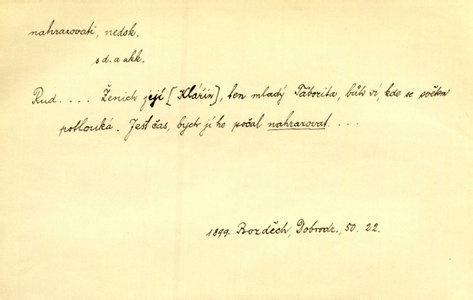 nahrazovati, nedok.
s d. a akk.
Rud. . . . Ženich její [Klářin], ten mladý Táborita, bůh ví, kde se světem
potlouká. Jesť čas, bych jí ho počal nahrazovat. . . .
1899. Bozděch, Dobrodr., 50. 22.